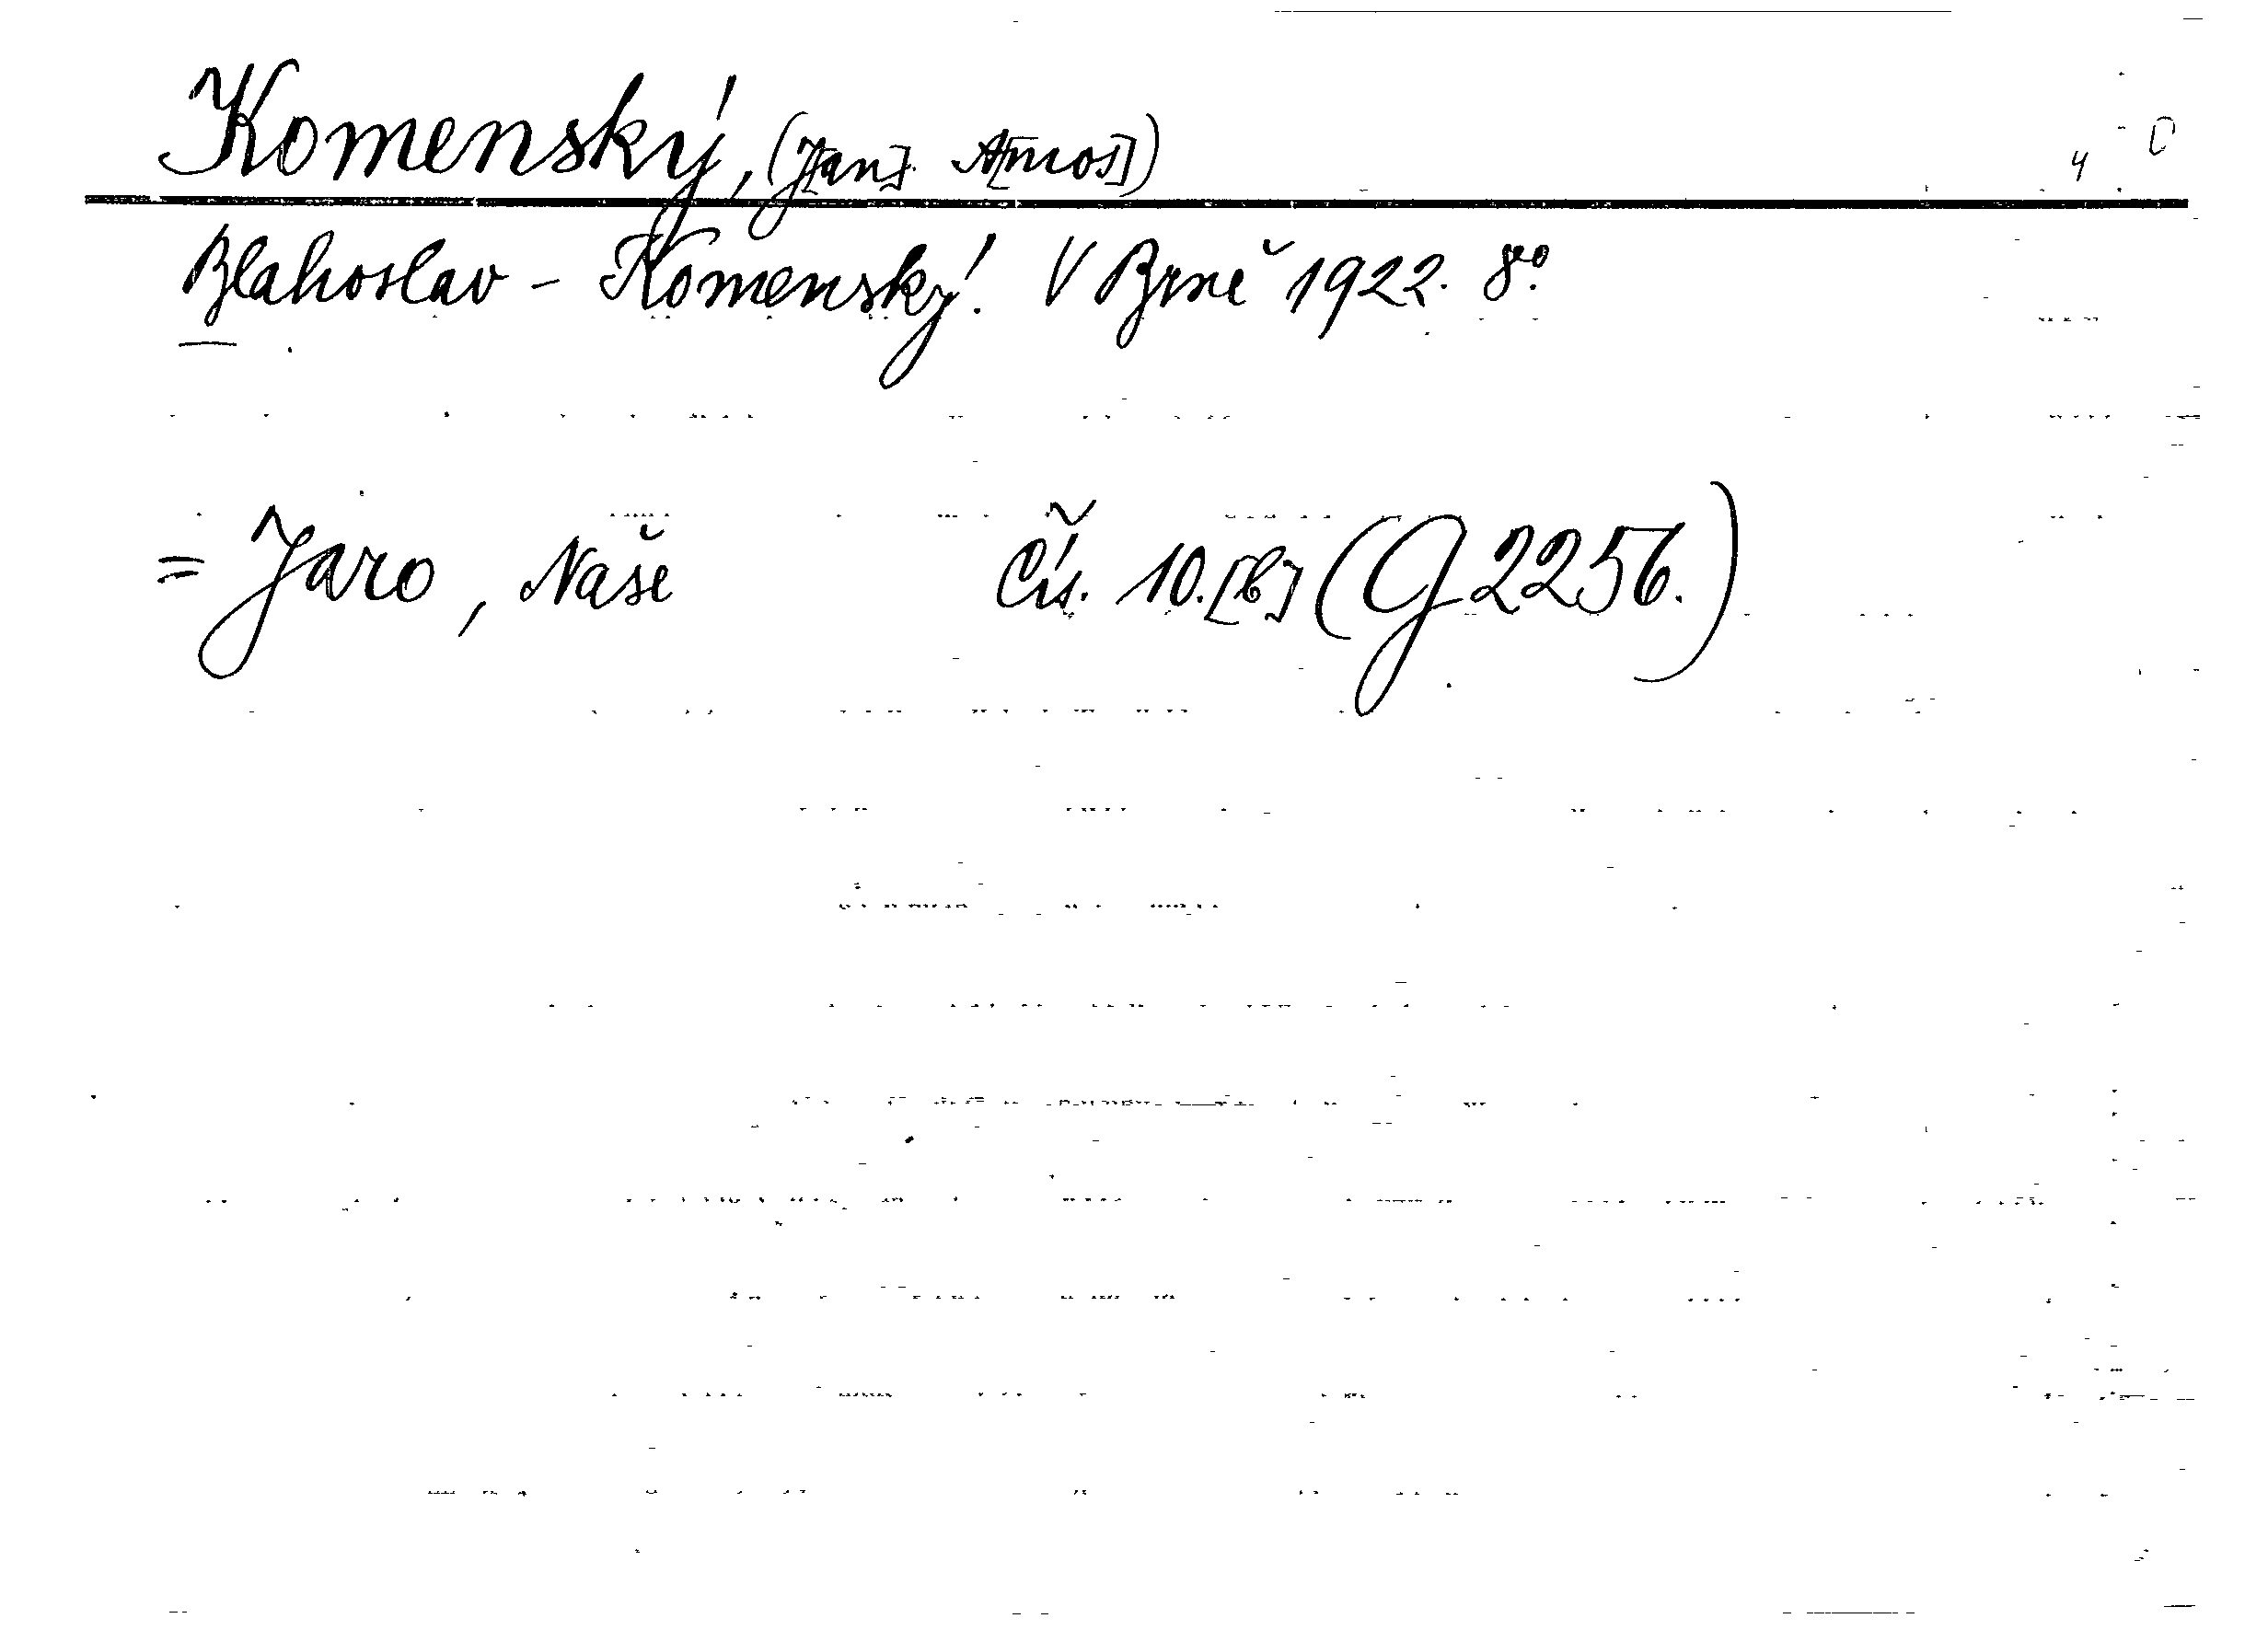 Komenský, (J[an]. A[mos])
Blahoslav - Komenský. V Brně 1922. 8°.
= Jaro, Naše Čís. 10.[b] (G 2256.)